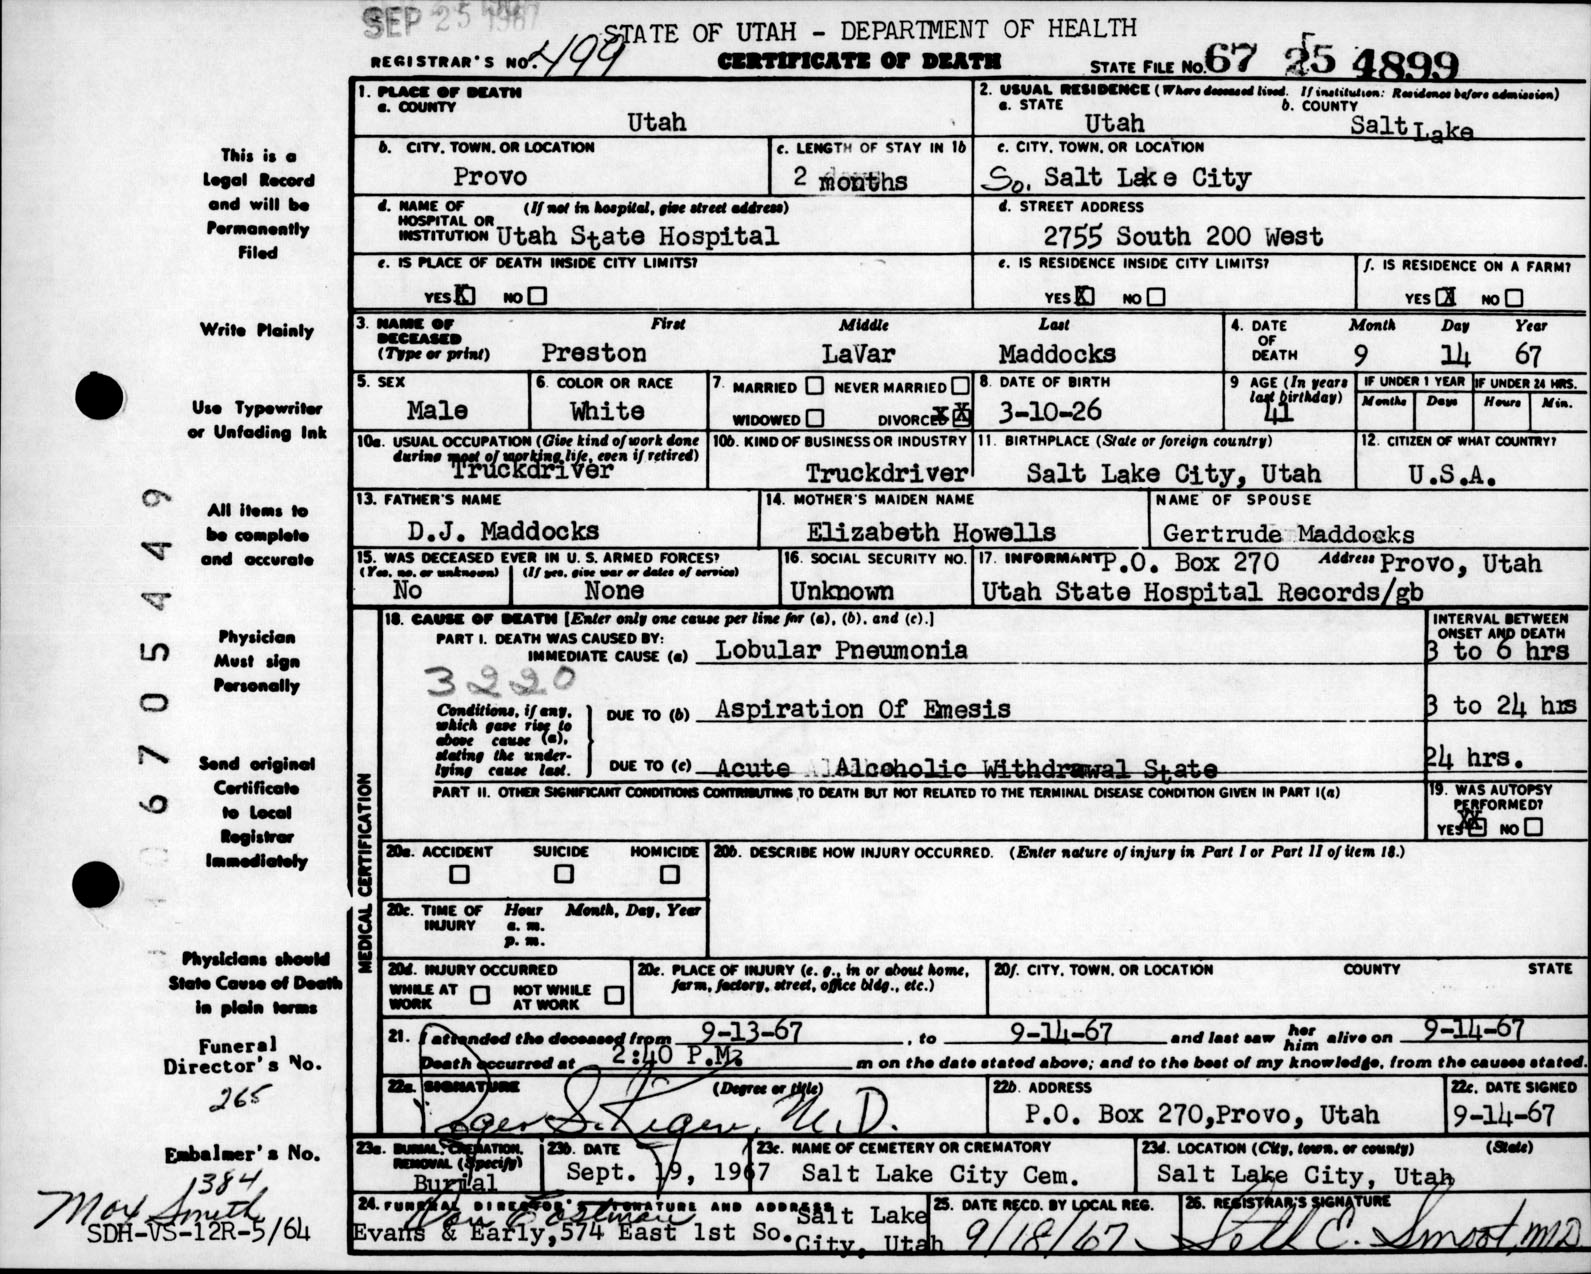 SEP 25 1967
STATE OF UTAH - DEPARTMENT OF HEALTH
REGISTRAR'S NO. 499 CERTIFICATE OF DEATH STATE FILE NO. 67 25 4899
1. PLACE OF DEATH
a. COUNTY
Utah
2. USUAL RESIDENCE (Where deceased lived. If institution: Residence before admission)
a. STATE b. COUNTY
Utah Salt Lake
b. CITY, TOWN, OR LOCATION
Provo
c. LENGTH OF STAY IN 1b
2 months
c. CITY, TOWN, OR LOCATION
So. Salt Lake City
d. NAME OF (If not in hospital, give street address)
HOSPITAL OR
INSTITUTION Utah State Hospital
d. STREET ADDRESS
2755 South 200 West
e. IS PLACE OF DEATH INSIDE CITY LIMITS?
YES X NO
e. IS RESIDENCE INSIDE CITY LIMITS?
YES X NO
f. IS RESIDENCE ON A FARM?
YES X NO
3. NAME OF First Middle Last
DECEASED
(Type or print) Preston LaVar Maddocks
4. DATE Month Day Year
OF
DEATH 9 14 67
5. SEX
Male
6. COLOR OR RACE
White
7. MARRIED NEVER MARRIED
WIDOWED DIVORCED X X
8. DATE OF BIRTH
3-10-26
9 AGE (In years
last birthday)
41
IF UNDER 1 YEAR IF UNDER 24 HRS.
Months Days Hours Min.
10a. USUAL OCCUPATION (Give kind of work done
during most of working life, even if retired)
Truckdriver
10b. KIND OF BUSINESS OR INDUSTRY
Truckdriver
11. BIRTHPLACE (State or foreign country)
Salt Lake City, Utah
12. CITIZEN OF WHAT COUNTRY?
U.S.A.
13. FATHER'S NAME
D.J. Maddocks
14. MOTHER'S MAIDEN NAME
Elizabeth Howells
NAME OF SPOUSE
Gertrude Maddocks
15. WAS DECEASED EVER IN U. S. ARMED FORCES?
(Yes, no, or unknown) (If yes, give war or dates of service)
No None
16. SOCIAL SECURITY NO.
Unknown
17. INFORMANT P.O. Box 270 Address Provo, Utah
Utah State Hospital Records/gb
MEDICAL CERTIFICATION
18. CAUSE OF DEATH [Enter only one cause per line for (a), (b), and (c).]
INTERVAL BETWEEN
ONSET AND DEATH
PART I. DEATH WAS CAUSED BY:
IMMEDIATE CAUSE (a) Lobular Pneumonia 3 to 6 hrs
3220
Conditions, if any,
which gave rise to
above cause (a),
stating the under-
lying cause last.
DUE TO (b) Aspiration Of Emesis 3 to 24 hrs
DUE TO (c) Acute Alcoholic Withdrawal State 24 hrs.
PART II. OTHER SIGNIFICANT CONDITIONS CONTRIBUTING TO DEATH BUT NOT RELATED TO THE TERMINAL DISEASE CONDITION GIVEN IN PART I(a)
19. WAS AUTOPSY
PERFORMED?
YES XX NO
20a. ACCIDENT SUICIDE HOMICIDE
20b. DESCRIBE HOW INJURY OCCURRED. (Enter nature of injury in Part I or Part II of item 18.)
20c. TIME OF Hour Month, Day, Year
INJURY a. m.
p. m.
20d. INJURY OCCURRED
WHILE AT NOT WHILE
WORK AT WORK
20e. PLACE OF INJURY (e. g., in or about home,
farm, factory, street, office bldg., etc.)
20f. CITY, TOWN, OR LOCATION COUNTY STATE
21. I attended the deceased from 9-13-67, to 9-14-67 and last saw her him alive on 9-14-67
Death occurred at 2:40 P.M. m on the date stated above; and to the best of my knowledge, from the causes stated.
22a. SIGNATURE (Degree or title)
Roger S. Kiger, M.D.
22b. ADDRESS
P.O. Box 270,Provo, Utah
22c. DATE SIGNED
9-14-67
23a. BURIAL, CREMATION,
REMOVAL (Specify)
Burial
23b. DATE
Sept. 19, 1967
23c. NAME OF CEMETERY OR CREMATORY
Salt Lake City Cem.
23d. LOCATION (City, town, or county) (State)
Salt Lake City, Utah
24. FUNERAL DIRECTOR'S SIGNATURE AND ADDRESS
Don Eastman
Evans & Early,574 East 1st So. Salt Lake
City, Utah
25. DATE RECD. BY LOCAL REG.
9/18/67
26. REGISTRAR'S SIGNATURE
Seth E. Smoot, MD
This is a
Legal Record
and will be
Permanently
Filed
Write Plainly
Use Typewriter
or Unfading Ink
All items to
be complete
and accurate
Physician
Must sign
Personally
Send original
Certificate
to Local
Registrar
Immediately
Physicians should
State Cause of Death
in plain terms
Funeral
Director's No.
265
Embalmer's No.
384
Max Smith
SDH-VS-12R-5/64
06705449